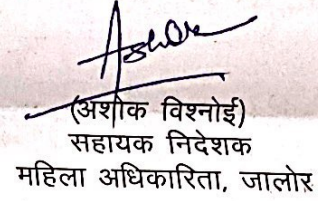 Ashok
(अशोक विश्नोई)
सहायक निदेशक
महिला अधिकारिता, जालोर